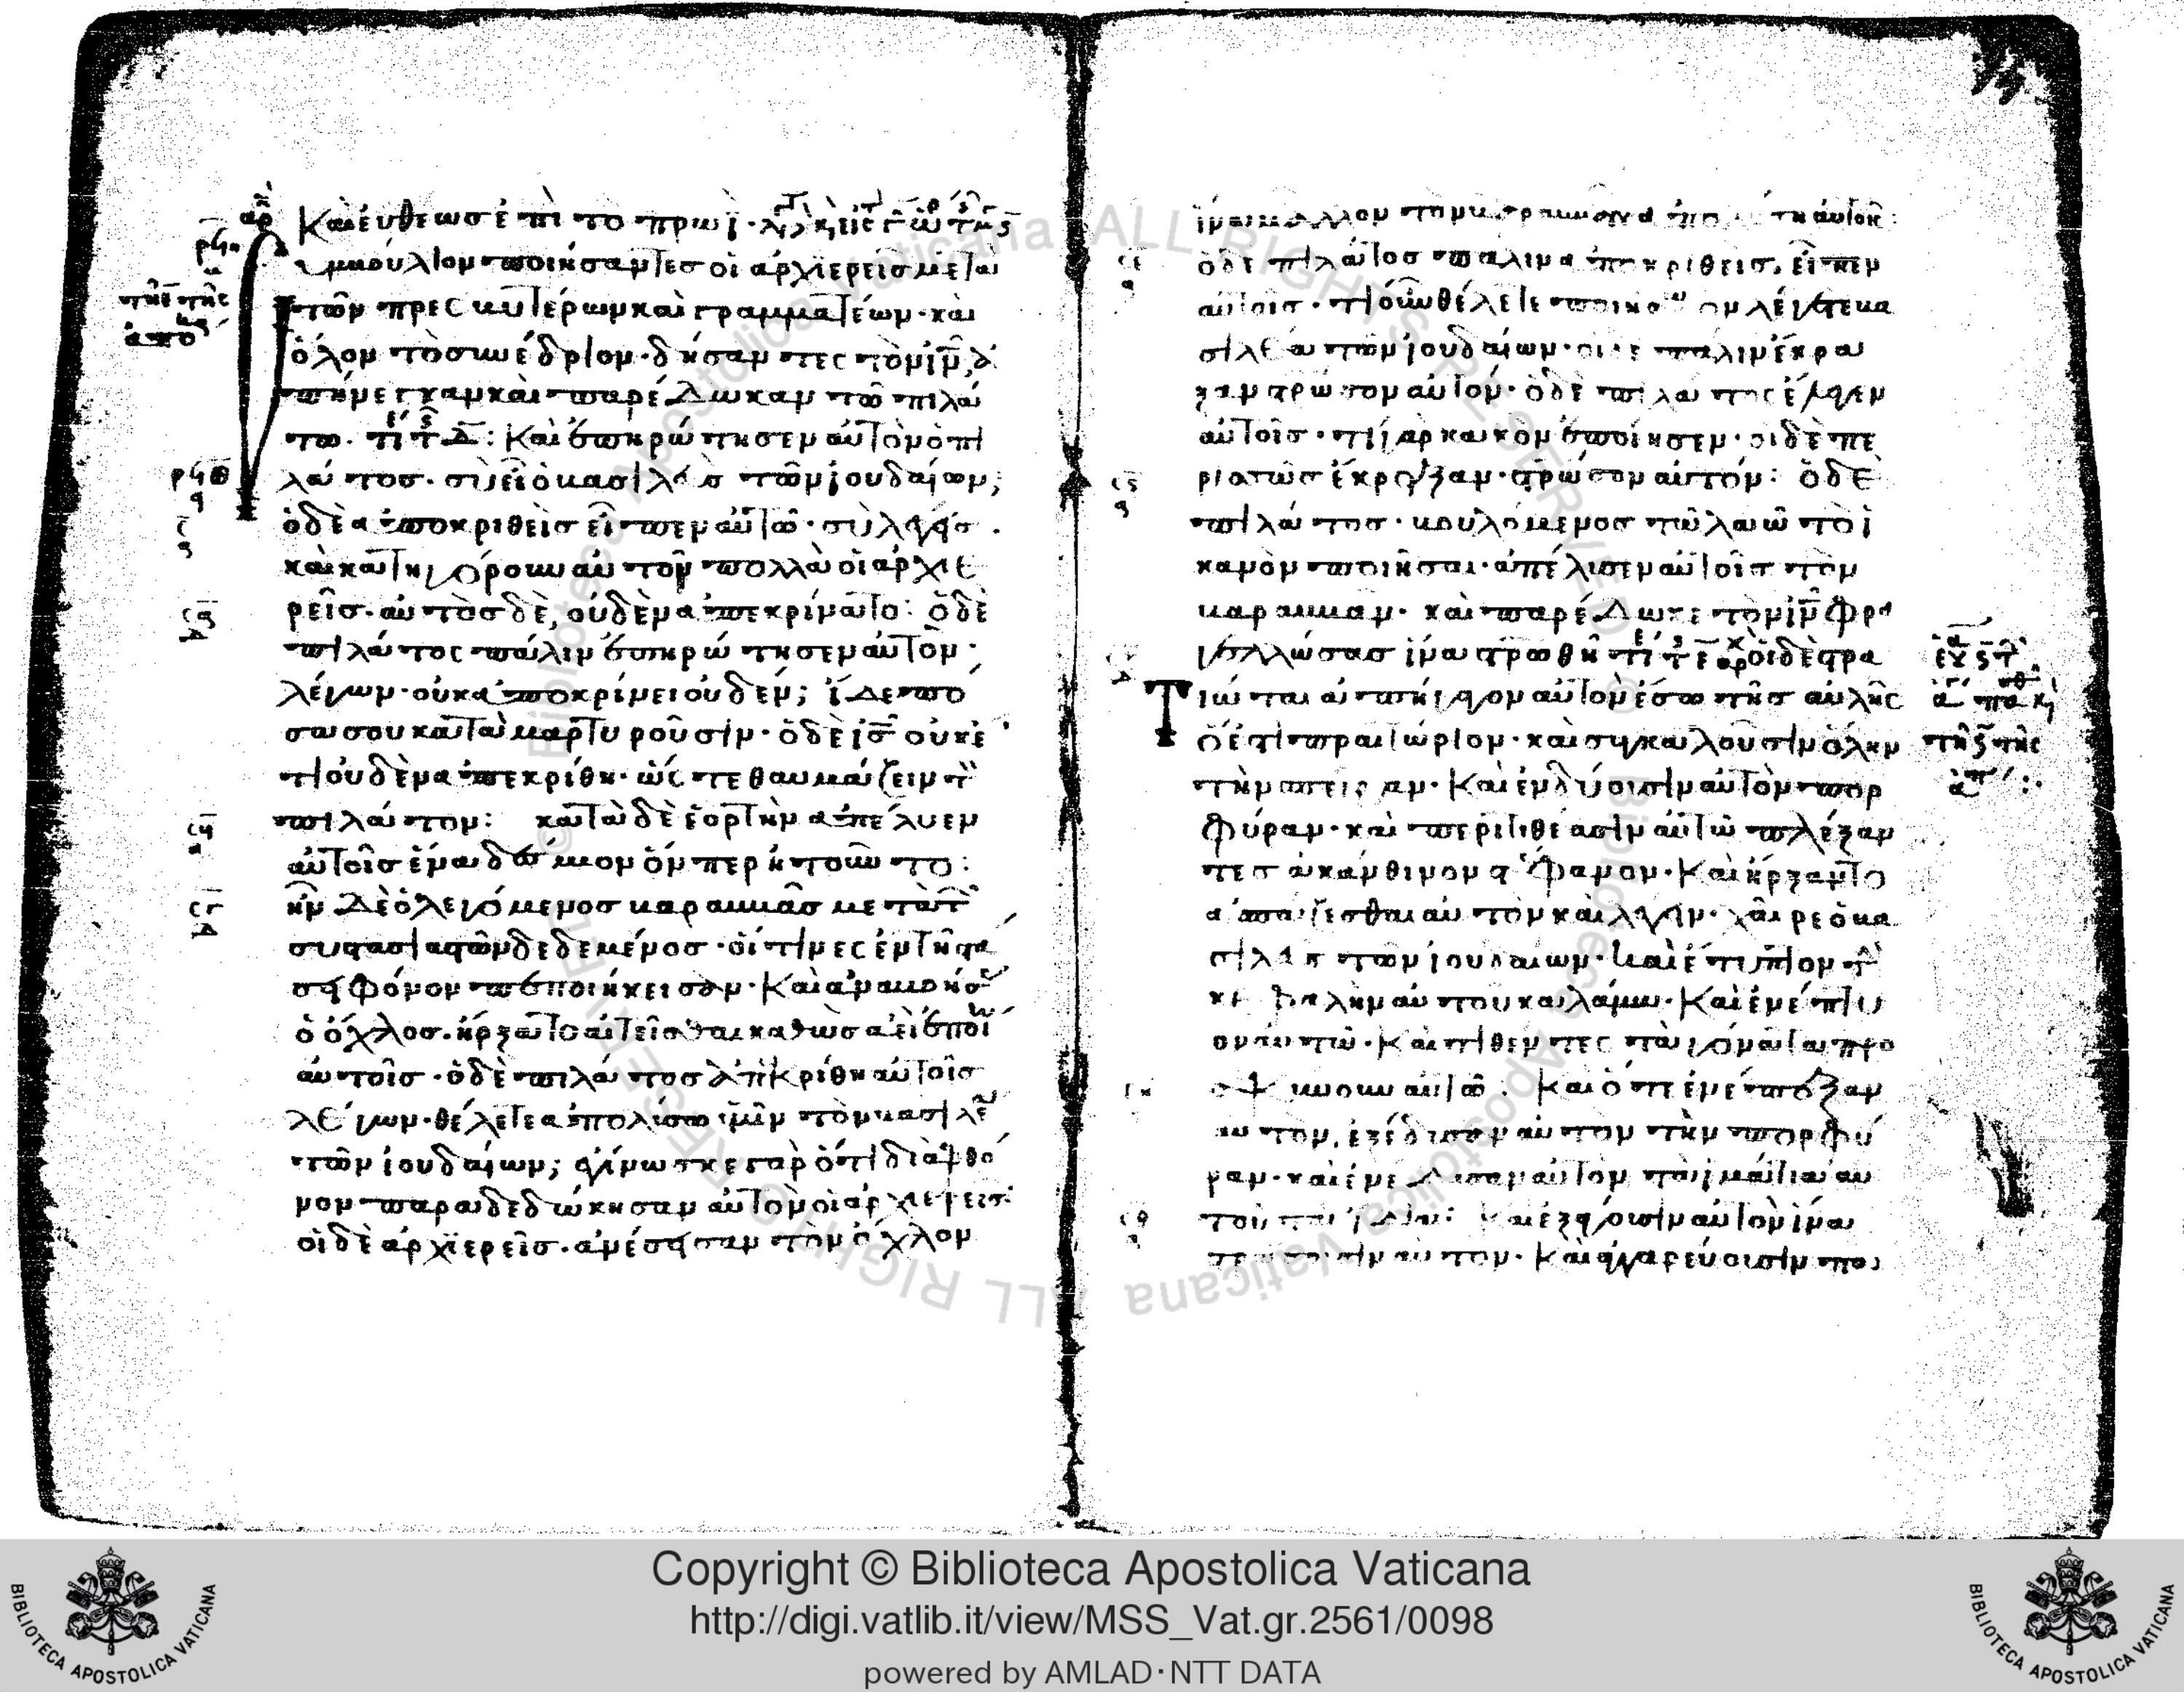 Καὶ εὐθέως ἐπὶ τὸ πρωῒ·
συμβούλιον ποιήσαντες οἱ ἀρχιερεῖς μετὰ
τῶν πρεσβυτέρων καὶ γραμματέων· καὶ
ὅλον τὸ συνέδριον· δήσαντες τὸν ἰν̅, ἀ
πήνεγκαν καὶ παρέδωκαν τῶ πιλά
τω. Καὶ ἐπηρώτησεν αὐτὸν ὁ πι
λάτος· σὺ εἶ ὁ βασιλεὺς τῶν ἰουδαίων;
ὁ δὲ ἀποκριθεὶς εἶπεν αὐτῶ· σὺ λέγεις.
καὶ κατηγόρουν αὐτοῦ πολλὰ οἱ ἀρχιε
ρεῖς. αὐτὸς δὲ, οὐδὲν ἀπεκρίνατο: ὁ δὲ
πιλάτος πάλιν ἐπηρώτησεν αὐτὸν·
λέγων· οὐκ ἀποκρίνει οὐδέν; ἴδε πό
σα σου καταμαρτυροῦσιν· ὁ δὲ ις̅ οὐκέ
τι οὐδὲν ἀπεκρίθη· ὥς τε θαυμάζειν τὸν
πιλάτον: κατὰ δὲ ἑορτὴν ἀπέλυεν
αὐτοῖς ἕνα δέσμιον ὅνπερ ἠτοῦντο:
ἦν δὲ ὁ λεγόμενος βαραββᾶς μετὰ τῶν
συστασιαστῶν δεδεμένος· οἵτινες ἐν τῆ στά
σει φόνον πεποιήκεισαν· Καὶ ἀναβοήσας
ὁ ὄχλος. ἤρξατο αἰτεῖσθαι καθὼς ἀεὶ ἐποίει
αὐτοῖς· ὁ δὲ πιλάτος ἀπεκρίθη αὐτοῖς
λέγων· θέλετε ἀπολύσω ὑμῖν τὸν βασιλέα
τῶν ἰουδαίων; ἐγίνωσκε γὰρ ὅτι διὰ φθό
νον παραδεδώκησαν αὐτὸν οἱ ἀρχιερεῖς·
οἱ δὲ ἀρχιερεῖς. ἀνέσεισαν τὸν ὄχλον
ἵνα μᾶλλον τὸν βαραββᾶν ἀπολύση αὐτοῖς:
ὁ δὲ πιλάτος πάλιν ἀποκριθεὶς. εἶπεν
αὐτοῖς· τί οὖν θέλετε ποιήσω ὃν λέγετε βα
σιλέα τῶν ἰουδαίων· οἱ δὲ πάλιν ἔκρα
ξαν στρωσον αὐτόν· ὁ δὲ πιλάτος ἔλεγεν
αὐτοῖς· τί γὰρ κακὸν ἐποίησεν· οἱ δὲ πε
ρισσῶς ἔκραξαν· στρωσον αὐτόν: ὁ δὲ
πιλάτος· βουλόμενος τῶ λαῶ τὸ ἱ
κανὸν ποιῆσαι· ἀπέλυσεν αὐτοῖς τὸν
βαραββᾶν· καὶ παρέδωκε τὸν ἰν̅ φρα
γελλώσας ἵνα στρωθῆ οἱ δὲ στρα
τιῶται ἀπήγαγον αὐτὸν ἔσω τῆς αὐλῆς
ὅ ἐστι πραιτώριον· καὶ συγκαλοῦσιν ὅλην
τὴν σπεῖραν· Καὶ ἐνδύουσιν αὐτὸν πορ
φύραν· καὶ περιτιθέασιν αὐτῶ πλέξαν
τες ἀκάνθινον στέφανον· Καὶ ἤρξαντο
ἀσπάζεσθαι αὐτὸν καὶ λέγειν· χαῖρε ὁ βα
σιλεὺς τῶν ἰουδαίων· Καὶ ἔτυπτον τὴν
κεφαλὴν αὐτοῦ καλάμω· Καὶ ἐνέπτυ
ον αὐτῶ· Καὶ τιθέντες τὰ γόνατα προ
σεκύνουν αὐτῶ. Καὶ ὅτε ἐνέπαιξαν
αὐτὸν, ἐξέδυσαν αὐτὸν τὴν πορφύ
ραν· καὶ ἐνέδυσαν αὐτὸν τὰ ἱμάτια αὐ
τοῦ τὰ ἴδια: Καὶ ἐξάγουσιν αὐτὸν ἵνα
στρωσουσιν αὐτὸν· Καὶ ἀγγαρεύουσιν
Copyright © Biblioteca Apostolica Vaticana
http://digi.vatlib.it/view/MSS_Vat.gr.2561/0098
powered by AMLAD·NTT DATA
BIBLIOTECA APOSTOLICA VATICANA
BIBLIOTECA APOSTOLICA VATICANA